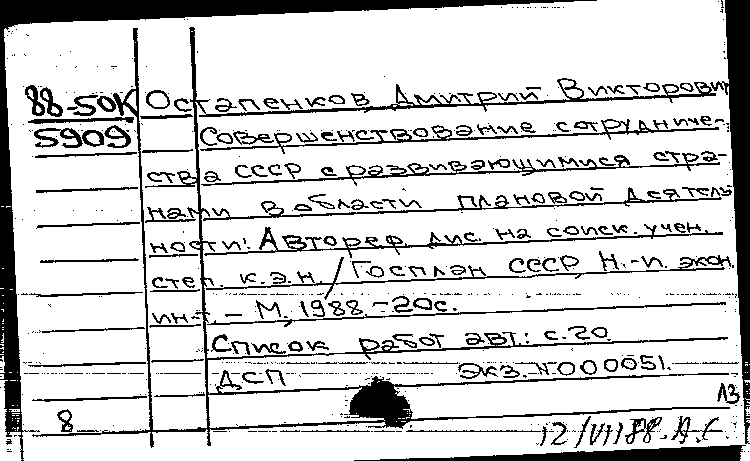 88-50К Остапенков, Дмитрий Викторович
5909 Совершенствование сотрудниче-
ства СССР с развивающимися стра-
нами в области плановой деятель
ности: Автореф. дис. на соиск. учен.
степ. к.э.н. / Госплан СССР, Н.-и. экон.
ин-т. - М., 1988. - 20с.
Список работ авт.: с.20
ДСП экз. N000051.
8
12/VII 88. А.С.